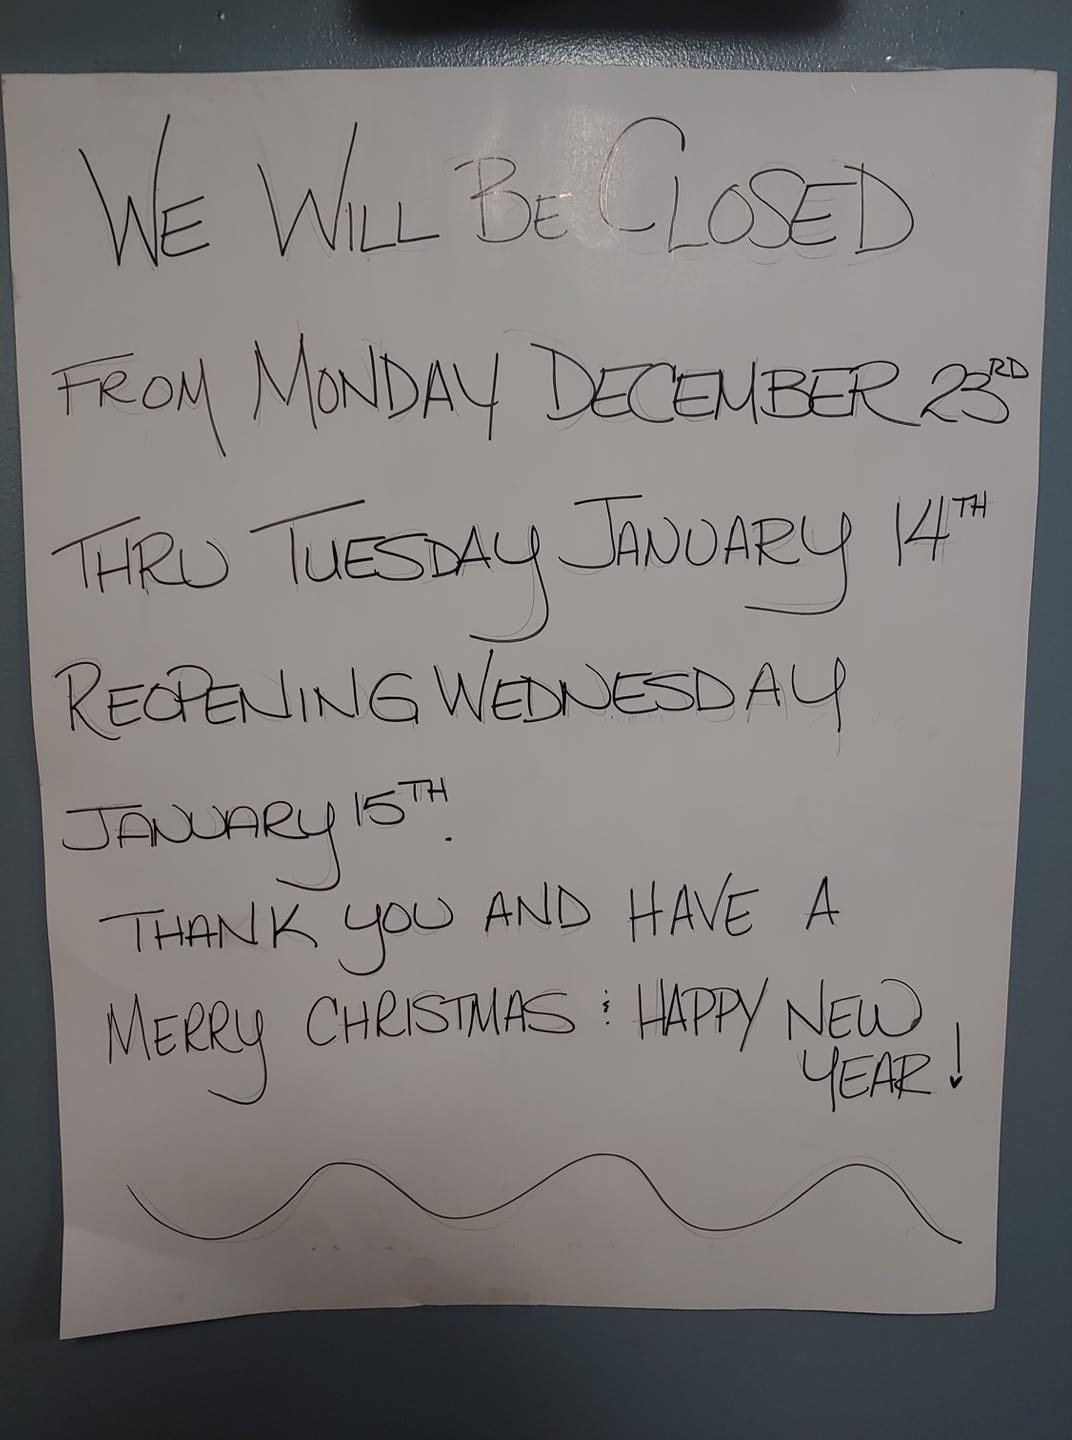 WE WILL BE CLOSED
FROM MONDAY DECEMBER 23RD
THRU TUESDAY JANUARY 14TH
REOPENING WEDNESDAY
JANUARY 15TH.
THANK YOU AND HAVE A
MERRY CHRISTMAS & HAPPY NEW
YEAR!